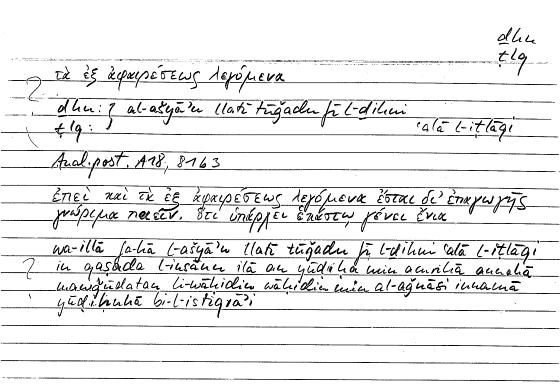 dhn
ṭlq
τὰ ἐξ ἀφαιρέσεως λεγόμενα
dhn: } al-ašyāʾu llatī tūǧadu fī l-dihni
ṭlq: } ʿalā l-iṭlāqi
Anal. post. A18, 81b3
ἐπεὶ καὶ τὰ ἐξ ἀφαιρέσεως λεγόμενα ἔσται δι' ἐπαγωγῆς
γνώριμα ποιεῖν, ὅτι ὑπάρχει ἑκάστῳ γένει ἔνια
wa-illā fa-hā l-ašyāʾu llatī tūǧadu fī l-dihni ʿalā l-iṭlāqi
in qaṣada l-insānu ilā an yūḍiḥa min amrihā annahā
mawǧūdatun li-wāḥidin wāḥidin min al-aǧnāsi innamā
yūḍiḥuhā bi-l-istiqrāʾi